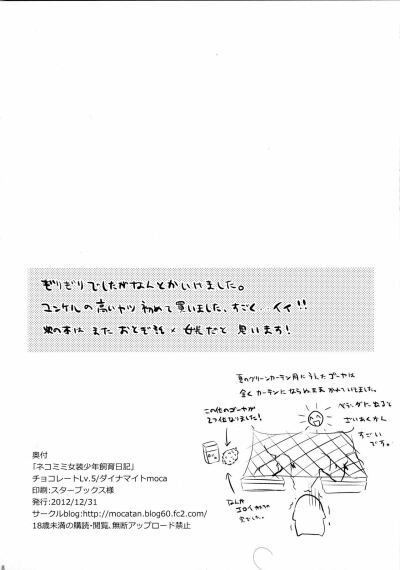 ぎりぎりでしたがなんとかいけました。
ユンケルの高いヤツ初めて買いました、すごく…イイ!!
次の本は またおとぎ話×女装だと思います!
夏のグリーンカーテン用にうえたゴーヤは
全くカーテンにならず
この位のゴーヤが
2つ位なりました!
ベランダに出ると
ざいあくかん
すごい
です。
なんか
エロイカンジ
でした。
奥付
「ネコミミ女装少年飼育日記」
チョコレートLv.5/ダイナマイトmoca
印刷:スターブックス様
発行:2012/12/31
サークルblog:http://mocatan.blog60.fc2.com/
18歳未満の購読・閲覧、無断アップロード禁止